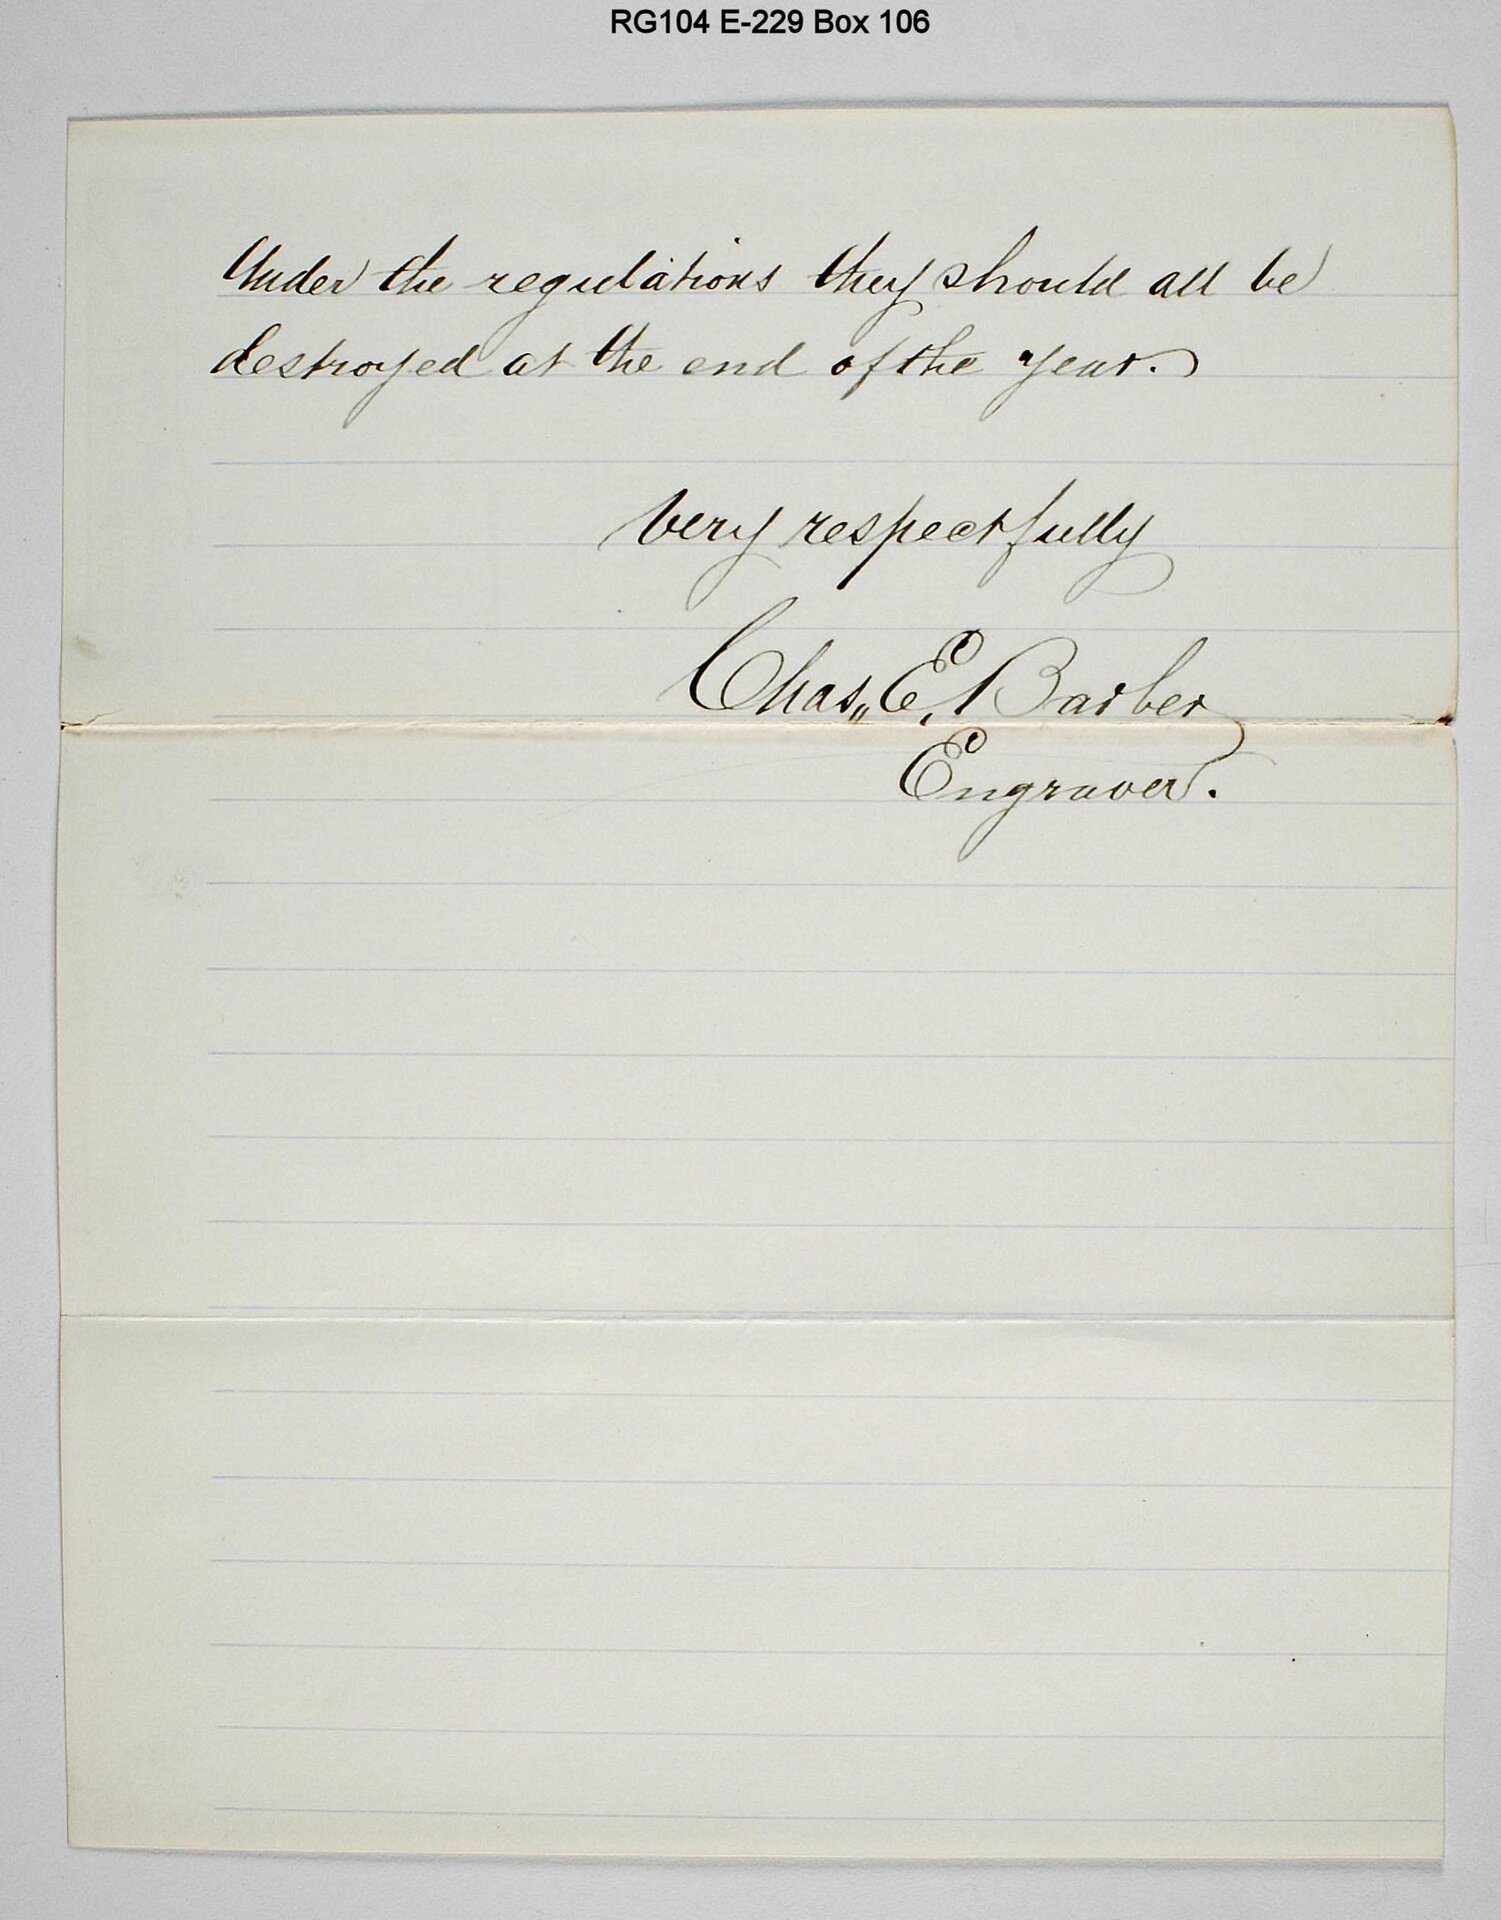 RG104 E-229 Box 106
Under the regulations they should all be
destroyed at the end of the year.
Very respectfully
Chas,, E. Barber
Engraver.